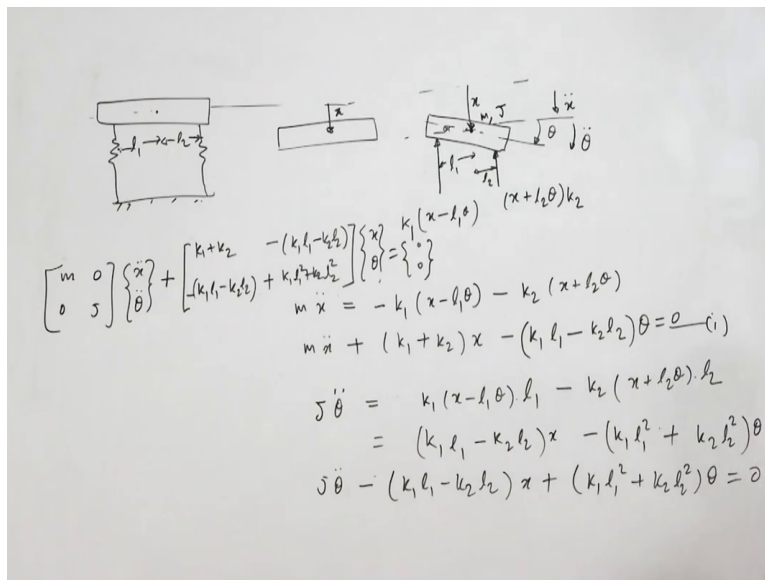 x
x M, J ẍ
θ θ̈
l₁ l₂
l₁
l₂
k₁(x-l₁θ) (x+l₂θ)k₂
[m 0; 0 J]{ẍ; θ̈} + [k₁+k₂ -(k₁l₁-k₂l₂); -(k₁l₁-k₂l₂) + k₁l₁²+k₂l₂²]{x; θ} = {0; 0}
mẍ = -k₁(x-l₁θ) - k₂(x+l₂θ)
mẍ + (k₁+k₂)x - (k₁l₁-k₂l₂)θ=0 —(i)
Jθ̈ = k₁(x-l₁θ).l₁ - k₂(x+l₂θ).l₂
= (k₁l₁-k₂l₂)x - (k₁l₁² + k₂l₂²)θ
Jθ̈ - (k₁l₁-k₂l₂)x + (k₁l₁²+k₂l₂²)θ = 0